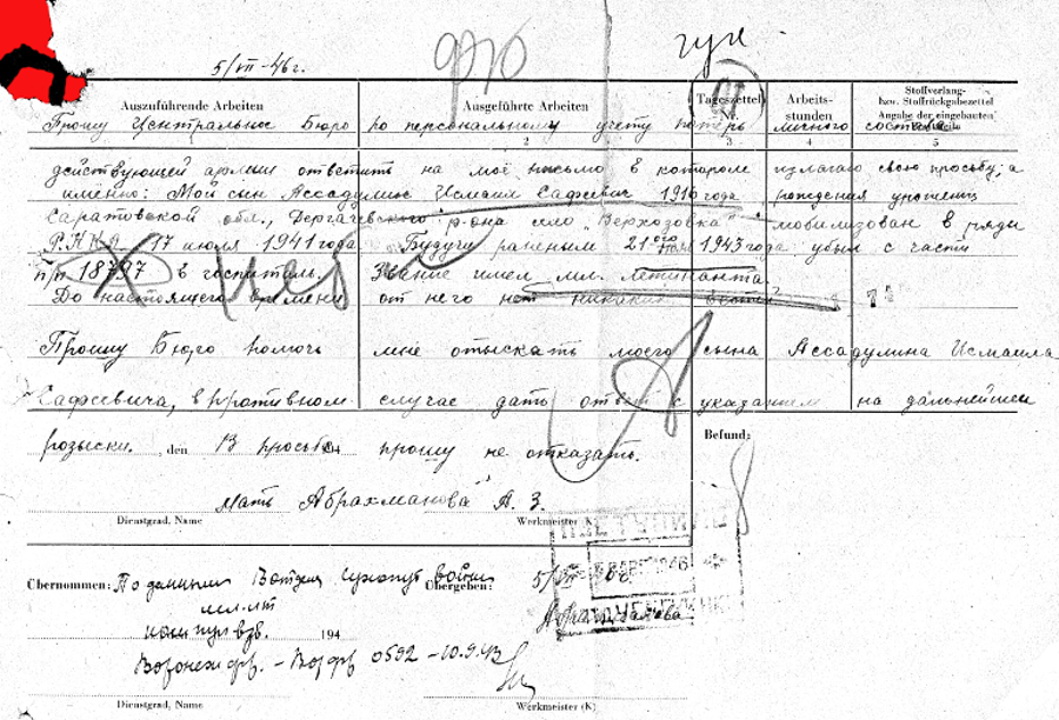 5/VII-46г.
Auszuführende Arbeiten
Ausgeführte Arbeiten
Tageszettel Nr.
Arbeits-
stunden
Stoffverlang-
bzw. Stoffrückgabezettel
Angabe der eingebauten
2 3 4 5
Прошу Центральное Бюро по персональному учету потерь личного состава
действующей армии ответить на моё письмо в котором излагаю свою просьбу, а
именно: Мой сын Ассадулин Исмаил Сафеевич 1916 года рождения уроженец
Саратовской обл., Дергачевского р-она село "Верхозовка" мобилизован в ряды
Р.К.К.А 17 июля 1941 года. Будучи раненым 21 1943 года убыл с части
п/п 18797 в госпиталь. Звание имел мл. лейтинанта.
До настоящего времени от него нет никаких вестей
Прошу Бюро помочь мне отыскать моего сына Ассадулина Исмаила
Сафеевича, в противном случае дать ответ с указанием на дальнейшие
Befund:
розыски. , den В просьбе 194 прошу не отказать.
Мать Абрахманова А. З.
Dienstgrad, Name Werkmeister (K)
Übernommen: По данным Übergeben: 5/VII
мл. л-т
ком пул взв. 194
Воронеж фр. - Вор фр 0592 - 10.9.43
Dienstgrad, Name Werkmeister (K)